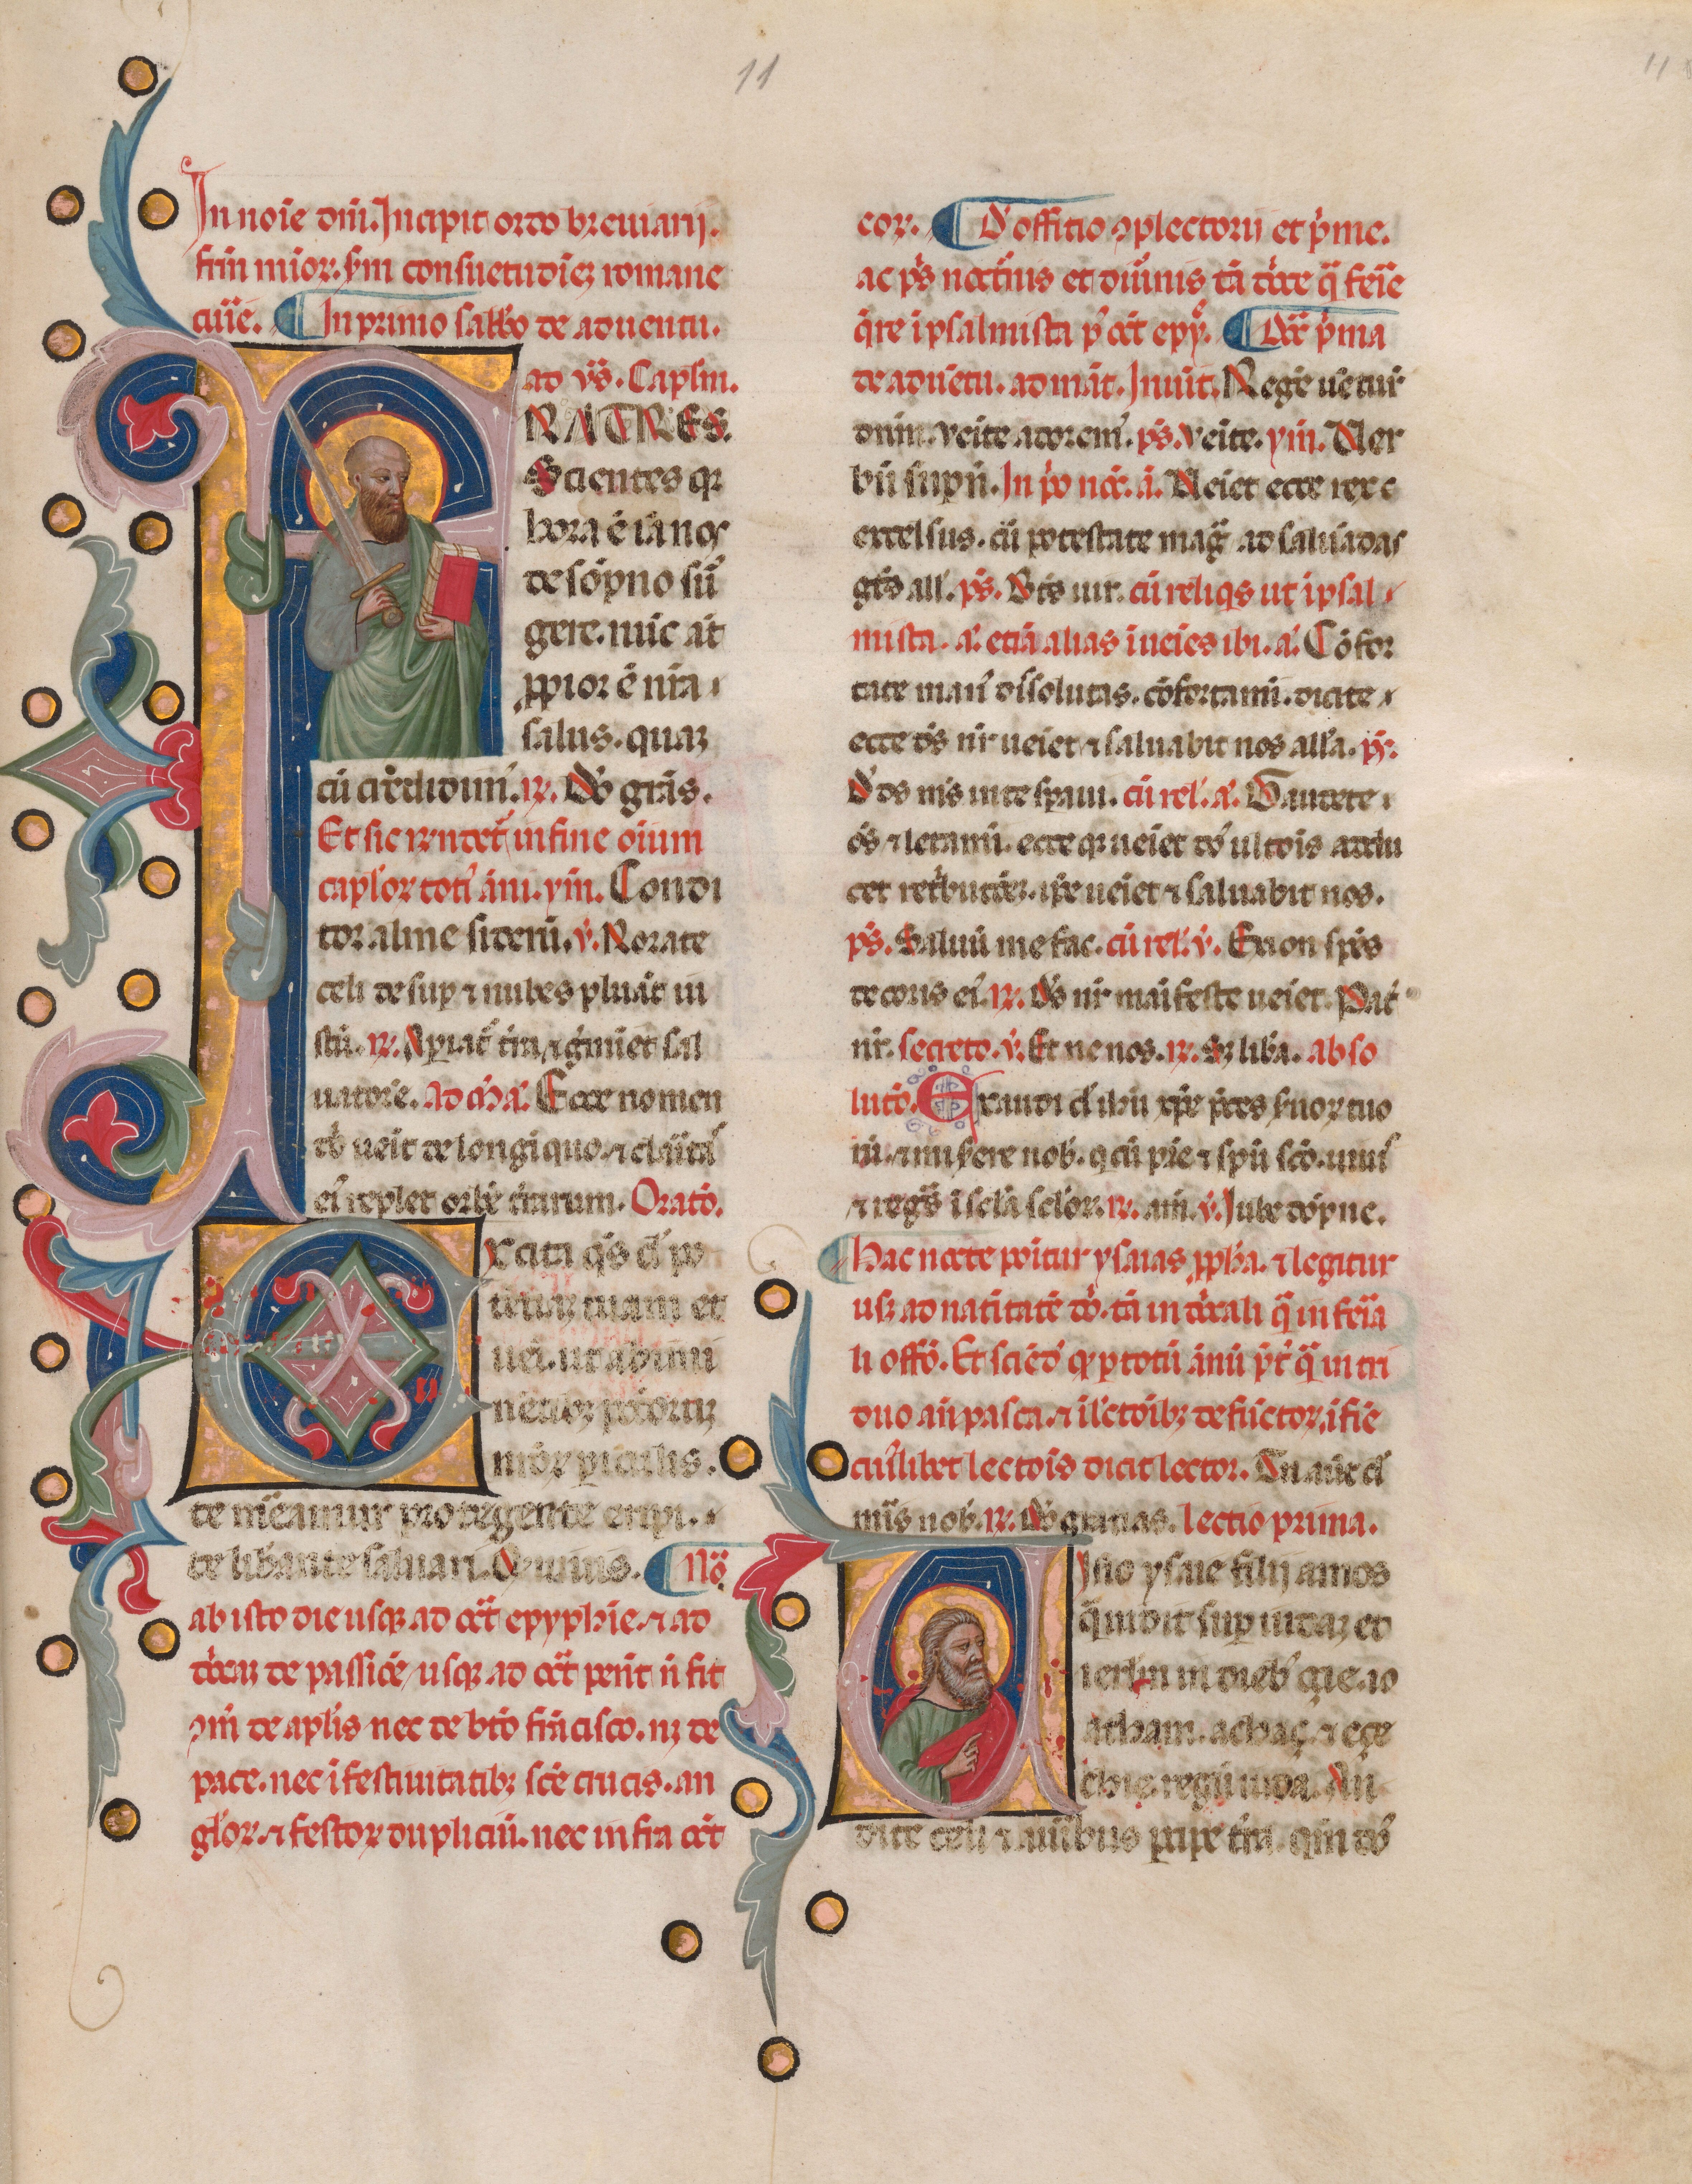 11
11
In noie dni. Incipit ordo breuiarij.
frm mior. sm consuetudiez romane
curie. In primo sabbo de aduentu.
ad vs. Caplm.
FRATRES.
Scientes qz
hora e ia nos
de sopno su
gere. nuc at
ppior e nra
salus. quaz
cu credidim. R. Do gras.
Et sic rendet in fine oium
caplor toti ani. ym. Condi
tor alme sideru. v. Rorate
celi desup et nubes pluat iu
stu. R. Apiat tra et gminet sal
uatore. ad m a. Ecce nomen
do ueit de longiquo. et claita
ei replet orbe trarum. Oratio.
Excita qs d po
tetiaz tuam et
uei. ut ab imi
nentibz pctoruz
nror piculis.
te meamur protegente eripi.
te libante saluari. Qui uiuis. No
ab isto die usqz ad oct epyphie. et ad
dnicaz de passioe usqz ad oct pent n fit
om de aplis nec de bto francisco. nz de
pace. nec i festiuitatibz sce crucis. an
glor. et festor dupliciu. nec infra oct
eor. D offitio completorii et prime.
ac ps nocturnis et diurnis ta dnice q ferie
qre i psalmista p oct epy. Dnica prima
de aduetu. ad mat. Inuit. Rege uetur
dnm. venite adorem. ps. venite. ym. Ver
bu supnu. In po noct. a. Veiet ecce rex e
excelsus. cu potestate mag ad saluadas
getes all. ps. Beatus uir. cu reliqs ut i psal
mista. a. etia alias inueies ibi. a. Cofor
tate man dissolutas. confortamini. dicite
ecce ds nr ueiet et saluabit nos alla. ps.
D ds mis in te speraui. cu rel. a. Gaudete
os et letamini. ecce qz ueiet do ultois addu
cet retributioez. ipse ueiet et saluabit nos.
ps. Saluu me fac. cu rel. v. Ex sion spes
decoris ei. R. Ds nr maifeste ueiet. Pat
nr. secreto. v. Et ne nos. R. Sz liba. abso
lutio. Exaudi d ihu xpe preces suor tuo
ru. et miserere nob. q cu pre et spu sco. uiui
et regs i scla sclor. R. am. v. Iube dopne.
Hac nocte ponitur ysaias ppha. et legitur
usz ad natiuitate do. ta in dnicali q in feria
li offo. Et scied q p totu anu pt q in tri
duo an pasca. et i lectoibz defuctor. i fine
cuilibet lectois dicit lector. Tu aute d
mis nob. R. Do gratias. lectio prima.
Visio ysaie filij amos
qm uidit sup iudaz et
ierlm in dieb ozie. io
atham. achaz. et eze
chie. regu iuda. Au
dite celi et auribus pcipe tra. qm do